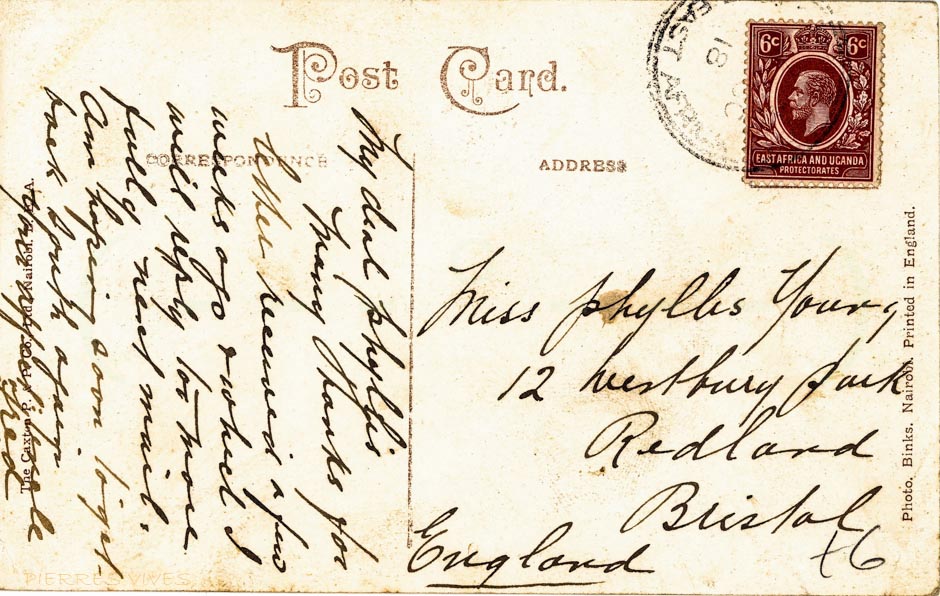 Post Card.
CORRESPONDENCE
ADDRESS
6c 6c
EAST AFRICA AND UGANDA
PROTECTORATES
EAST
18
My dear phyllis
Many thanks for
letter received a few
weeks ago & which I
will reply to more
fully next mail.
Am hoping soon to get
back South again
Fred
Miss phyllis Young
12 Westbury Park
Redland
Bristol
England
+6
The Caxton Nairobi.
Photo. Binks. Nairobi. Printed in England.
PIERRES VIVES